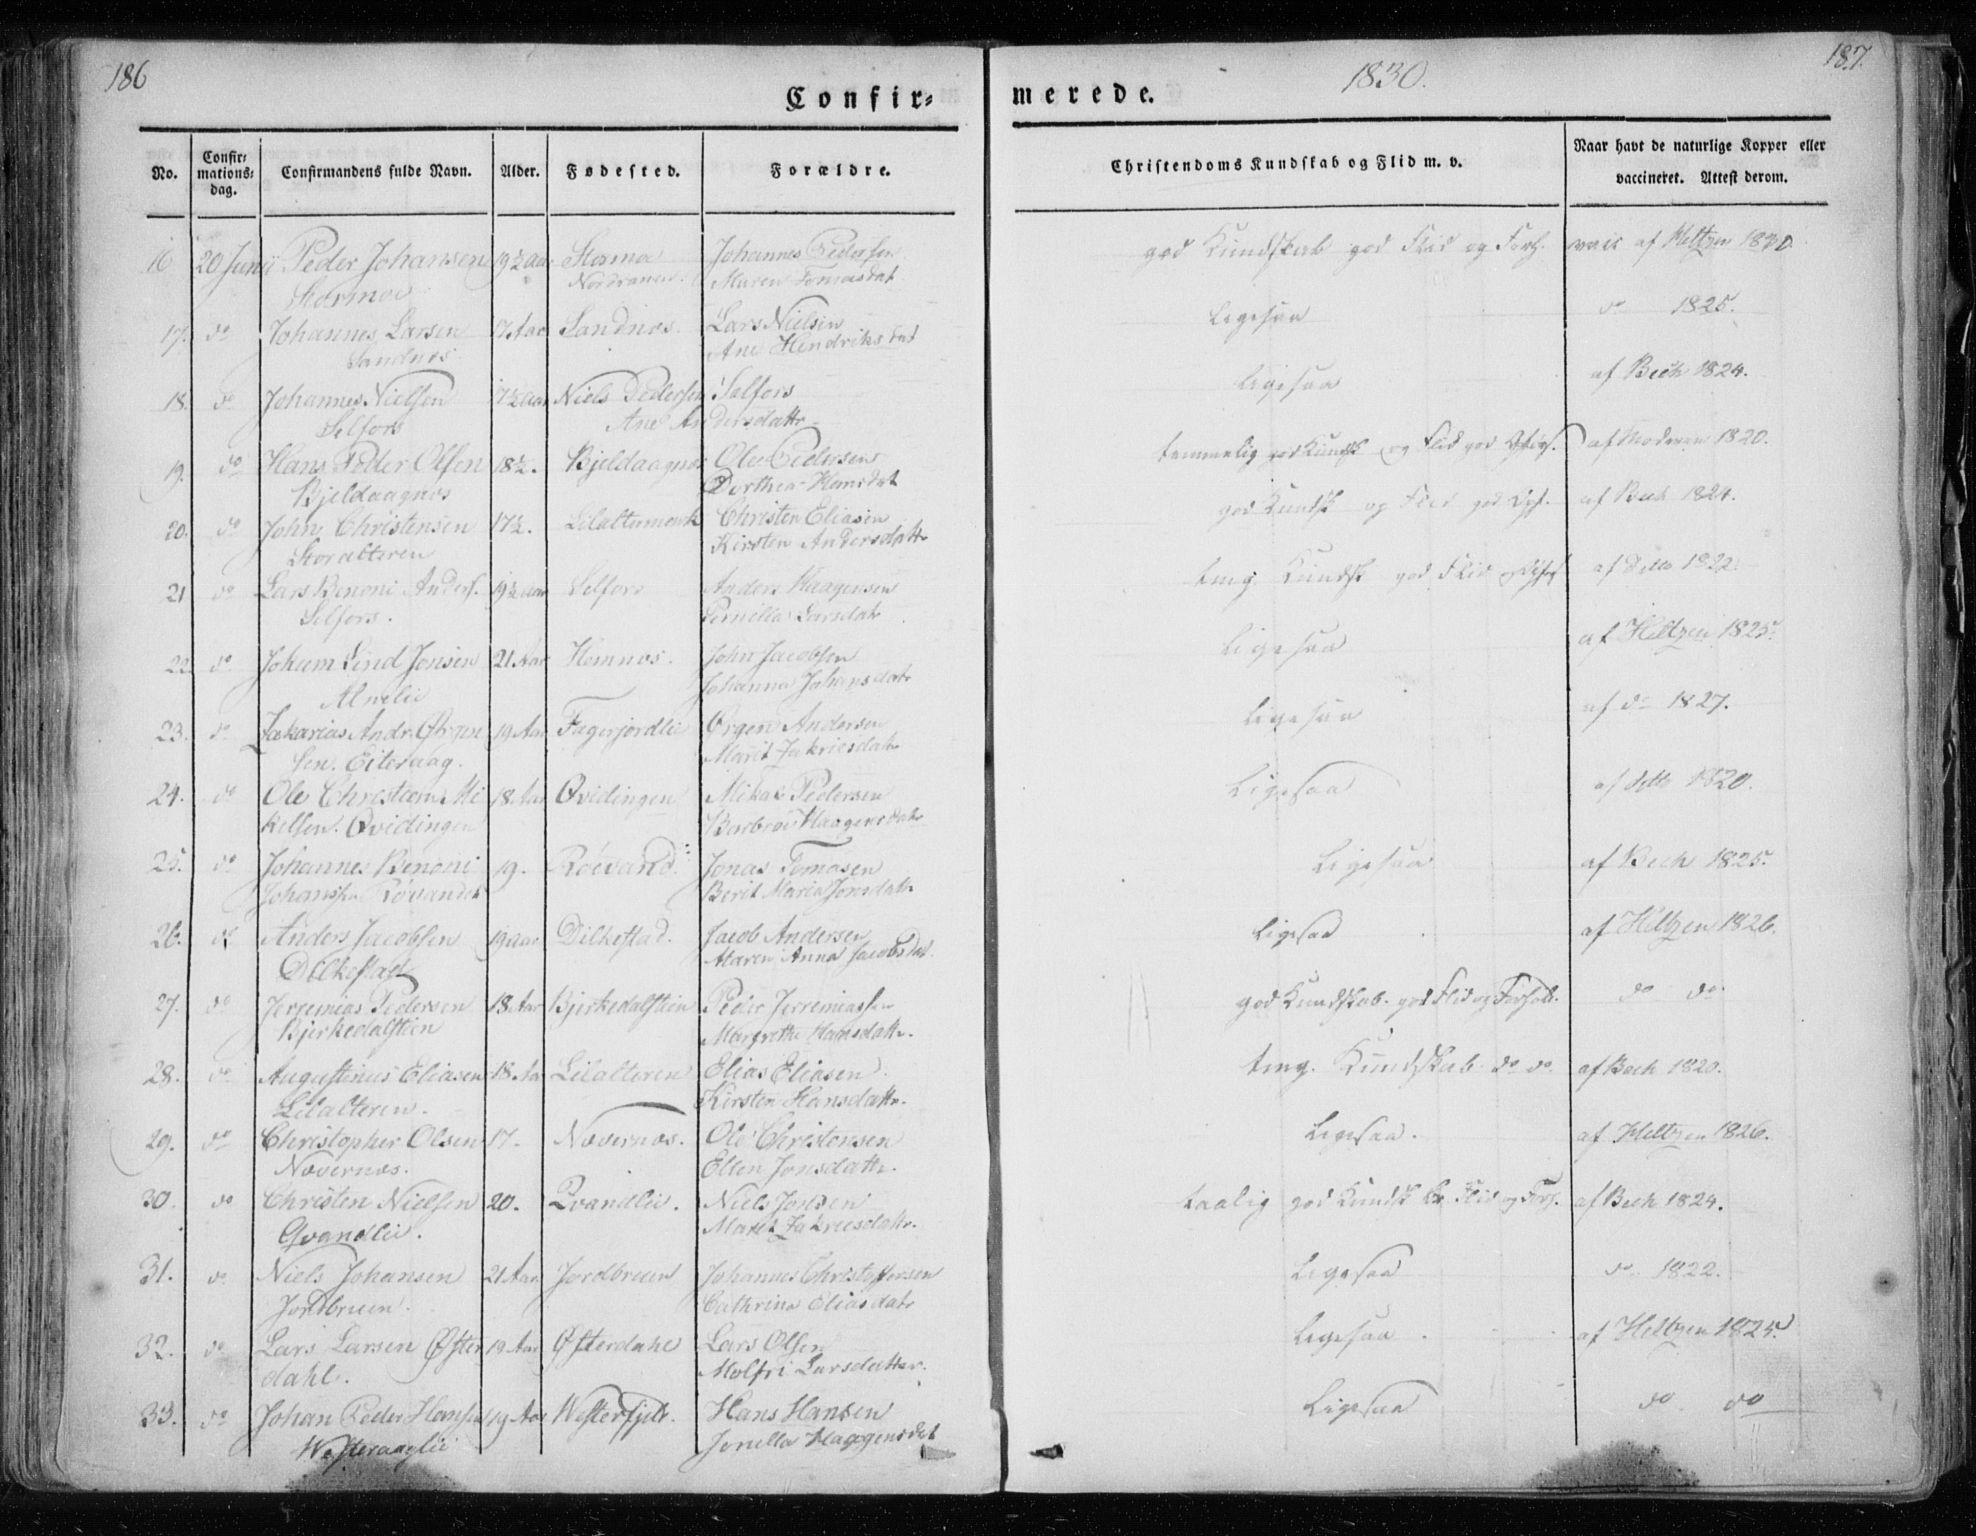 186
Confir-
merede.
1830.
187.
No.
Confir-
mations-
dag.
Confirmandens fulde Navn.
Alder.
Fødested.
Forældre.
Christendoms Kundskab og Flid m. v.
Naar havt de naturlige Kopper eller
vaccineret. Attest derom.
16 20 Junii Peder Johansen 19½ Aar Stormoe Johannes Pedersen god Kundskab god Flid og Forh. vacc af Heltzen 1830
Stormoe Nordranen Maren Tomasdat
17. do Johannes Larsen 17 Aar Sandnæs. Lars Nielsen Ligesaa do 1825.
Sandnæs Ane Hendriksdat
18. do Johannes Nielsen 17½ Aar Niels Pedersen Selfors Ligesaa af Bech 1824.
Selfors Ane Andersdattr
19. do Hans Peder Olsen 18½. Bjeldaagnæs Ole Pedersen temmelig god Kundsk og Flid god Forh. af 1820.
Bjeldaagnæs Dorthea Hansdat
20. do John Christensen 17½. Lilalternmark Christen Eliasen god Kundsk og Flid god Opf. af Bech 1824.
Storalteren Kirsten Andersdattr
21 do Lars Benoni Anders. 19½ Aar Selfors Anders Haagensen tmg Kundsk god Flid af Ditto 1822.
Selfors. Pernilla Larsdatr
22 do Johan Lind Jonsen 21 Aar Hemnæs. John Jacobsen Ligesaa af Heltzen 1825.
Alnelie Johanna Johansdatr
23. do Zakarias Andr. Ørgen 19 Aar Fagerjordlie Ørgen Andersen Ligesaa af do 1827.
sen. Eiteraag. Marit Zakriesdatr
24. do Ole Christian Mi 18 Aar Qvidingen Mikal Pedersen Ligesaa af ditto 1820.
kelsen. Qvidingen Barbroe Haagensdatr
25. do Johannes Benoni 19. Roevand. Jonas Tomasen Ligesaa af Bech 1825.
Johanssen Røvandet Berit Maria Jonsdatr
26. do Anders Jacobsen 19 Aar Dilkestad. Jacob Andersen Ligesaa af Heltzen 1826.
Dilkestad Maren Anna Jacobsdat.
27. do Jerremias Pedersen 18 Aar Bjerkedalstien Peder Jerremiassen god Kundskab. god Flid og Forhold. do do.
Bjerkedalstien Margrethe Hansdattr.
28. do Augustinus Eliasen 18 Aar Lilalteren Elias Eliasen tmg. Kundskab do do. af Bech 1820.
Lilalteren. Kirsten Hansdattr.
29. do Christopher Olsen 17. Nævernæs. Ole Christensen Ligesaa. af Heltzen 1826.
Nævernæs. Ellen Jonsdattr.
30. do Christen Nielsen 20. Qvandlie. Niels Jonsen taalig god Kundsk Flid og Forh. af Bech 1824.
Qvandlie. Marit Zakriesdattr.
31. do Niels Johansen 21 Aar Jordbruen Johannes Christophersen Ligesaa do 1822.
Jordbruen. Cathrina Eliasdatr
32. do Lars Larsen Øster 19 Aar Østerdahl Lars Olsen Ligesaa af Heltzen 1825.
dahl. Molfri Larsdatter.
33. do Johan Peder Hansen 19 Aar Westerfjeld. Hans Hansen Ligesaa do do
Westeraaglie Jonella Haagensdat